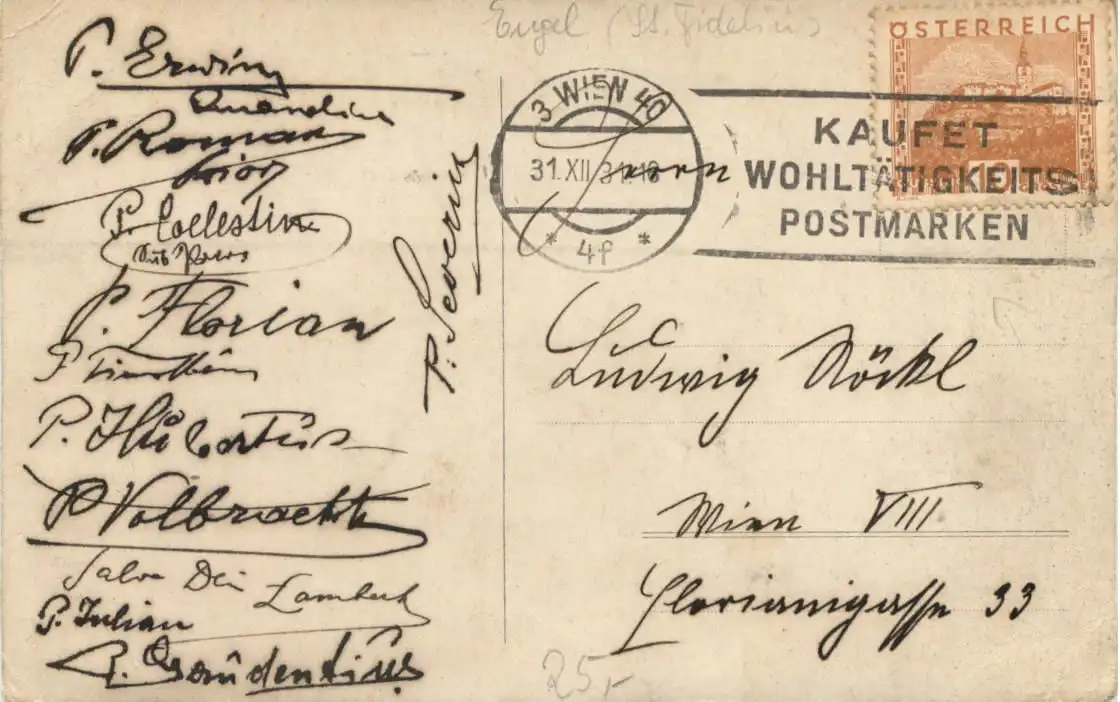 Engel (St. Fidelius)
ÖSTERREICH
3 WIEN 40
31.XII.31.18
* 4f *
KAUFET
WOHLTÄTIGKEITS
POSTMARKEN
P. Erwin
Amandus
P. Roman
Prior
P. Coelestin
P. Florian
P. Hubertus
P. Volbracht
Salva Dei
Lambert
P. Julian
P. Gaudentius
P. Severin
Herrn
Ludwig Nöckl
Wien VIII
Florianigasse 33
25,-